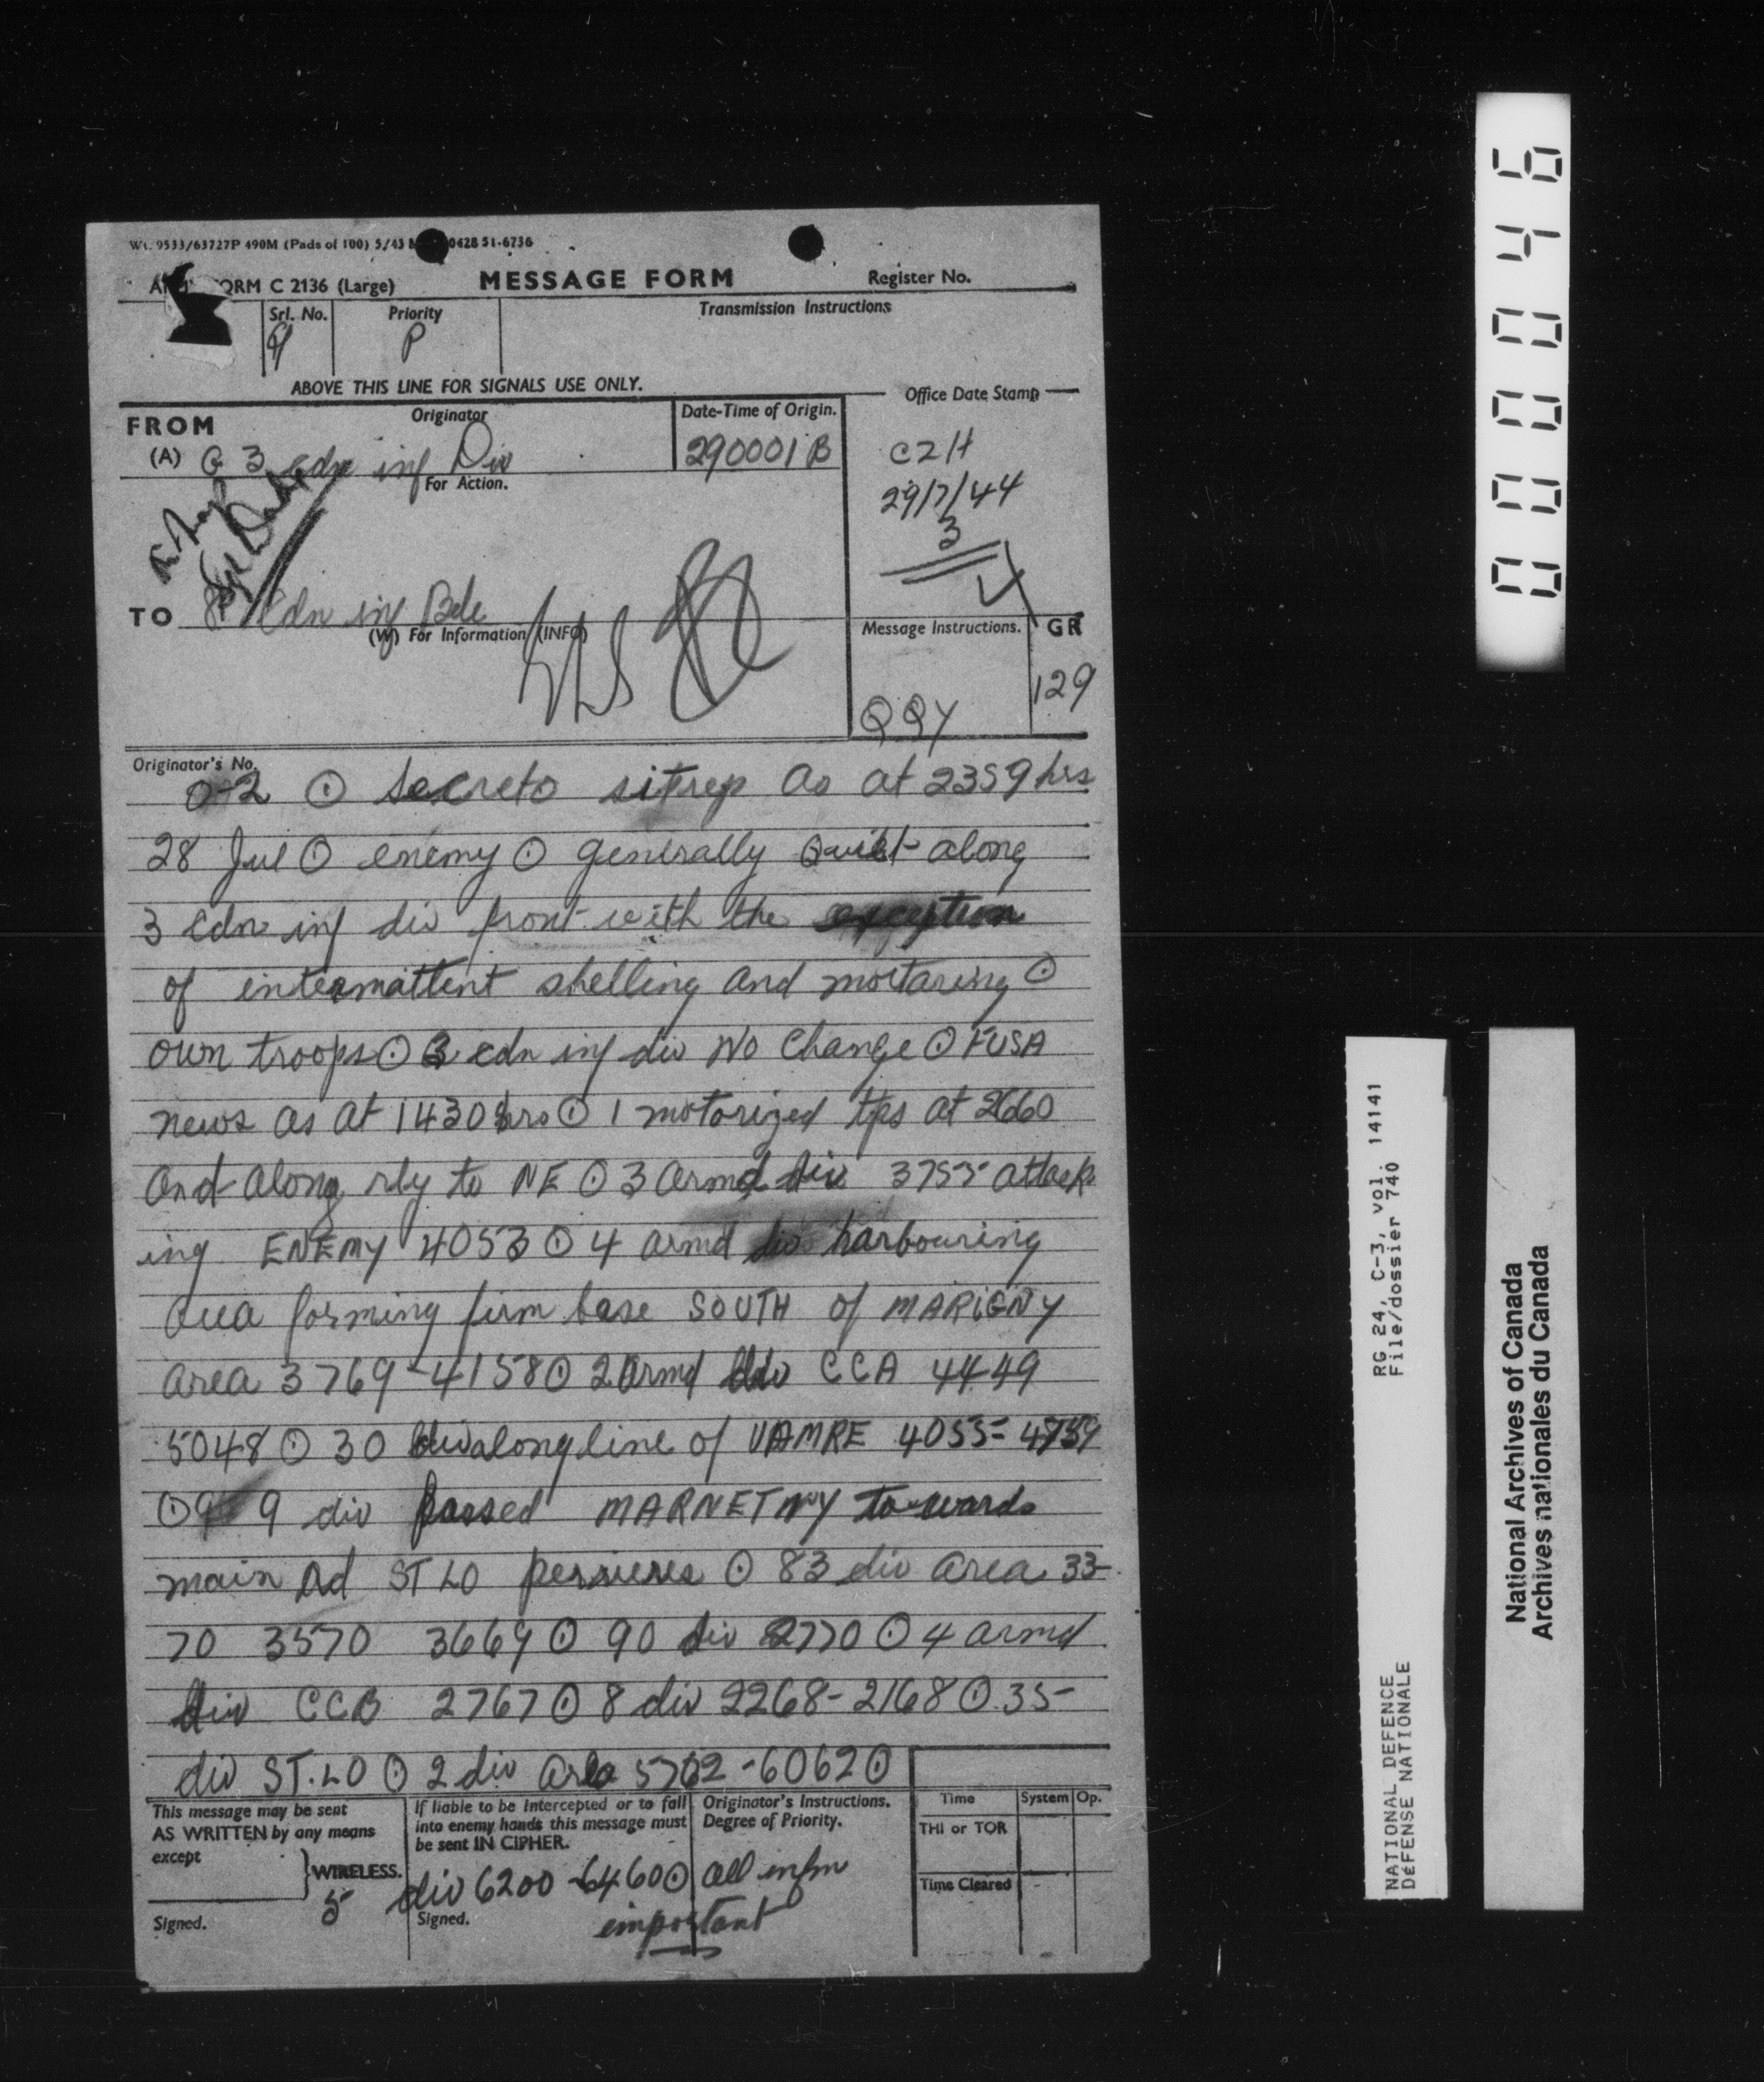 0428 51-6736
W. 9533/63727P 490M (Pads of 100) 5/43
FORM C 2136 (Large)
MESSAGE FORM
Register No.
Srl. No.
Priority
P
Transmission Instructions
ABOVE THIS LINE FOR SIGNALS USE ONLY.
FROM
(A)
Originator
G 3 cdn inf Div
Date-Time of Origin.
290001 B
Office Date Stamp
C2H
29/7/44
3
For Action.
TO 8 Cdn inf Bde
(W) For Information (INFO)
Message Instructions.
QQY
GR
129
Originator's No.
0-2 ⊙ Secreto sitrep as at 2359 hrs
28 Jul ⊙ enemy ⊙ generally Quiet along
3 Cdn inf div front with the exception
of intermattent shelling and mortaring ⊙
own troops ⊙ 3 cdn inf div No Change ⊙ FUSA
news as at 1430 hrs ⊙ 1 motorized tps at 2660
and along rly to NE ⊙ 3 armd div 3755 attack
ing ENEMY 4053 ⊙ 4 armd div harbouring
area forming firm base SOUTH of MARIGNY
area 3769-4158 ⊙ 2 armd div CCA 4449
5048 ⊙ 30 div along line of VAMRE 4055-
⊙ 9 div passed towards
main rd ST LO perrieres ⊙ 83 div area 33-
70 3570 3669 ⊙ 90 div 2770 ⊙ 4 armd
div CCB 2767 ⊙ 8 div 2268-2168 ⊙ 35-
div ST.LO ⊙ 2 div area 5762-6062 ⊙
This message may be sent
AS WRITTEN by any means
except
WIRELESS.
Signed.
If liable to be intercepted or to fall
into enemy hands this message must
be sent IN CIPHER.
5 div 6200-6460 ⊙ all infm
important
Signed.
Originator's Instructions.
Degree of Priority.
Time
System
Op.
THI or TOR
Time Cleared
000046
RG 24, C-3, vol. 14141
File/dossier 740
NATIONAL DEFENCE
DéFENSE NATIONALE
National Archives of Canada
Archives nationales du Canada